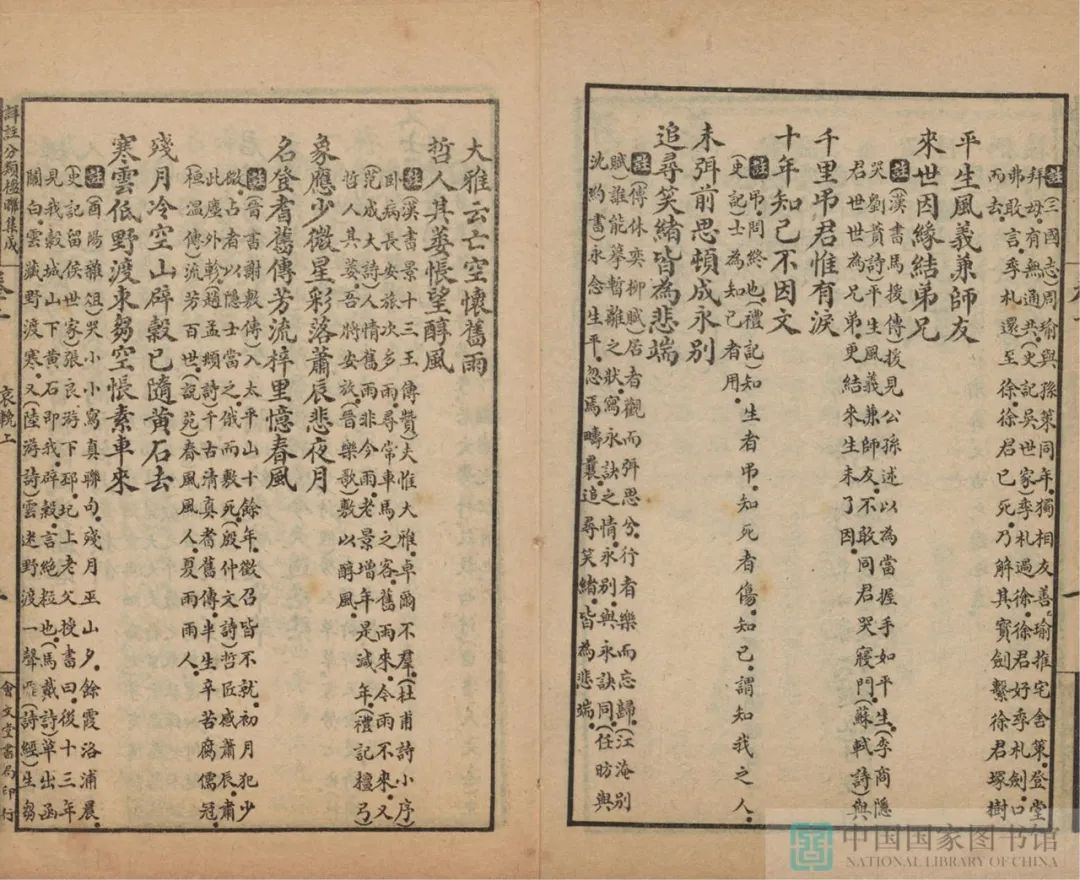 註(三國志)周瑜與孫策同年獨相友善瑜推宅舍策登堂
拜母有無通共(史記吳世家)季札過徐徐君好季札劍口
弗敢言季札還至徐徐君已死乃解其寶劍繫徐君塚樹
而去
平生風義兼師友
來世因緣結弟兄
註(漢書馬援傳)援見公孫述以為當握手如平生(李商隱
哭劉蕡詩)平生風義兼師友不敢同君哭寢門(蘇軾詩)與
君世世為兄弟更結來生未了因
千里弔君惟有淚
十年知己不因文
註弔問終也(禮記)知生者弔知死者傷知己謂知我之人
(史記)士為知己者用
未弭前思頓成永別
追尋笑緒皆為悲端
註(傅休奕柳賦)居者觀而弭思兮行者樂而忘歸(江淹別
賦)誰能摹暫離之狀寫永訣之情永別與永訣同(任昉與
沈約書)永念生平忽焉疇曩追尋笑緒皆為悲端
大雅云亡空懷舊雨
哲人其萎悵望醇風
註(漢書景十三王傳贊)夫惟大雅卓爾不群(杜甫詩小序)
臥病長安旅次多雨尋常車馬之客舊雨來今雨不來又
(范成大詩)人情舊雨非今雨老景增年是減年(禮記檀弓)
哲人其萎吾將安放(晉樂歌)敷以醇風
象應少微星彩落蕭辰悲夜月
名登耆舊傳芳流梓里憶春風
註(晉書謝敷傳)入太平山十餘年徵召皆不就初月犯少
微占者以隱士當之俄而敷死(殷仲文詩)哲匠感蕭辰肅
此塵外軫(趙孟頫詩)千古清真耆舊傳半生辛苦腐儒冠
(桓溫傳)流芳百世(說苑)春風風人夏雨雨人
殘月冷空山辟穀已隨黃石去
寒雲低野渡束芻空悵素車來
註(酉陽雜俎)哭小小寫真聯句殘月巫山夕餘霞洛浦晨
(史記留侯世家)張良游下邳圯上老父授書曰後十三年
見我穀城山下黃石即我辟穀言絕粒也(馬戴詩)草出函
關白雲藏野渡寒又(陸游詩)雲迷野渡一聲雁(詩經)生芻
詳註分類楹聯集成
哀輓上
會文堂書局印行
中国国家图书馆
NATIONAL LIBRARY OF CHINA